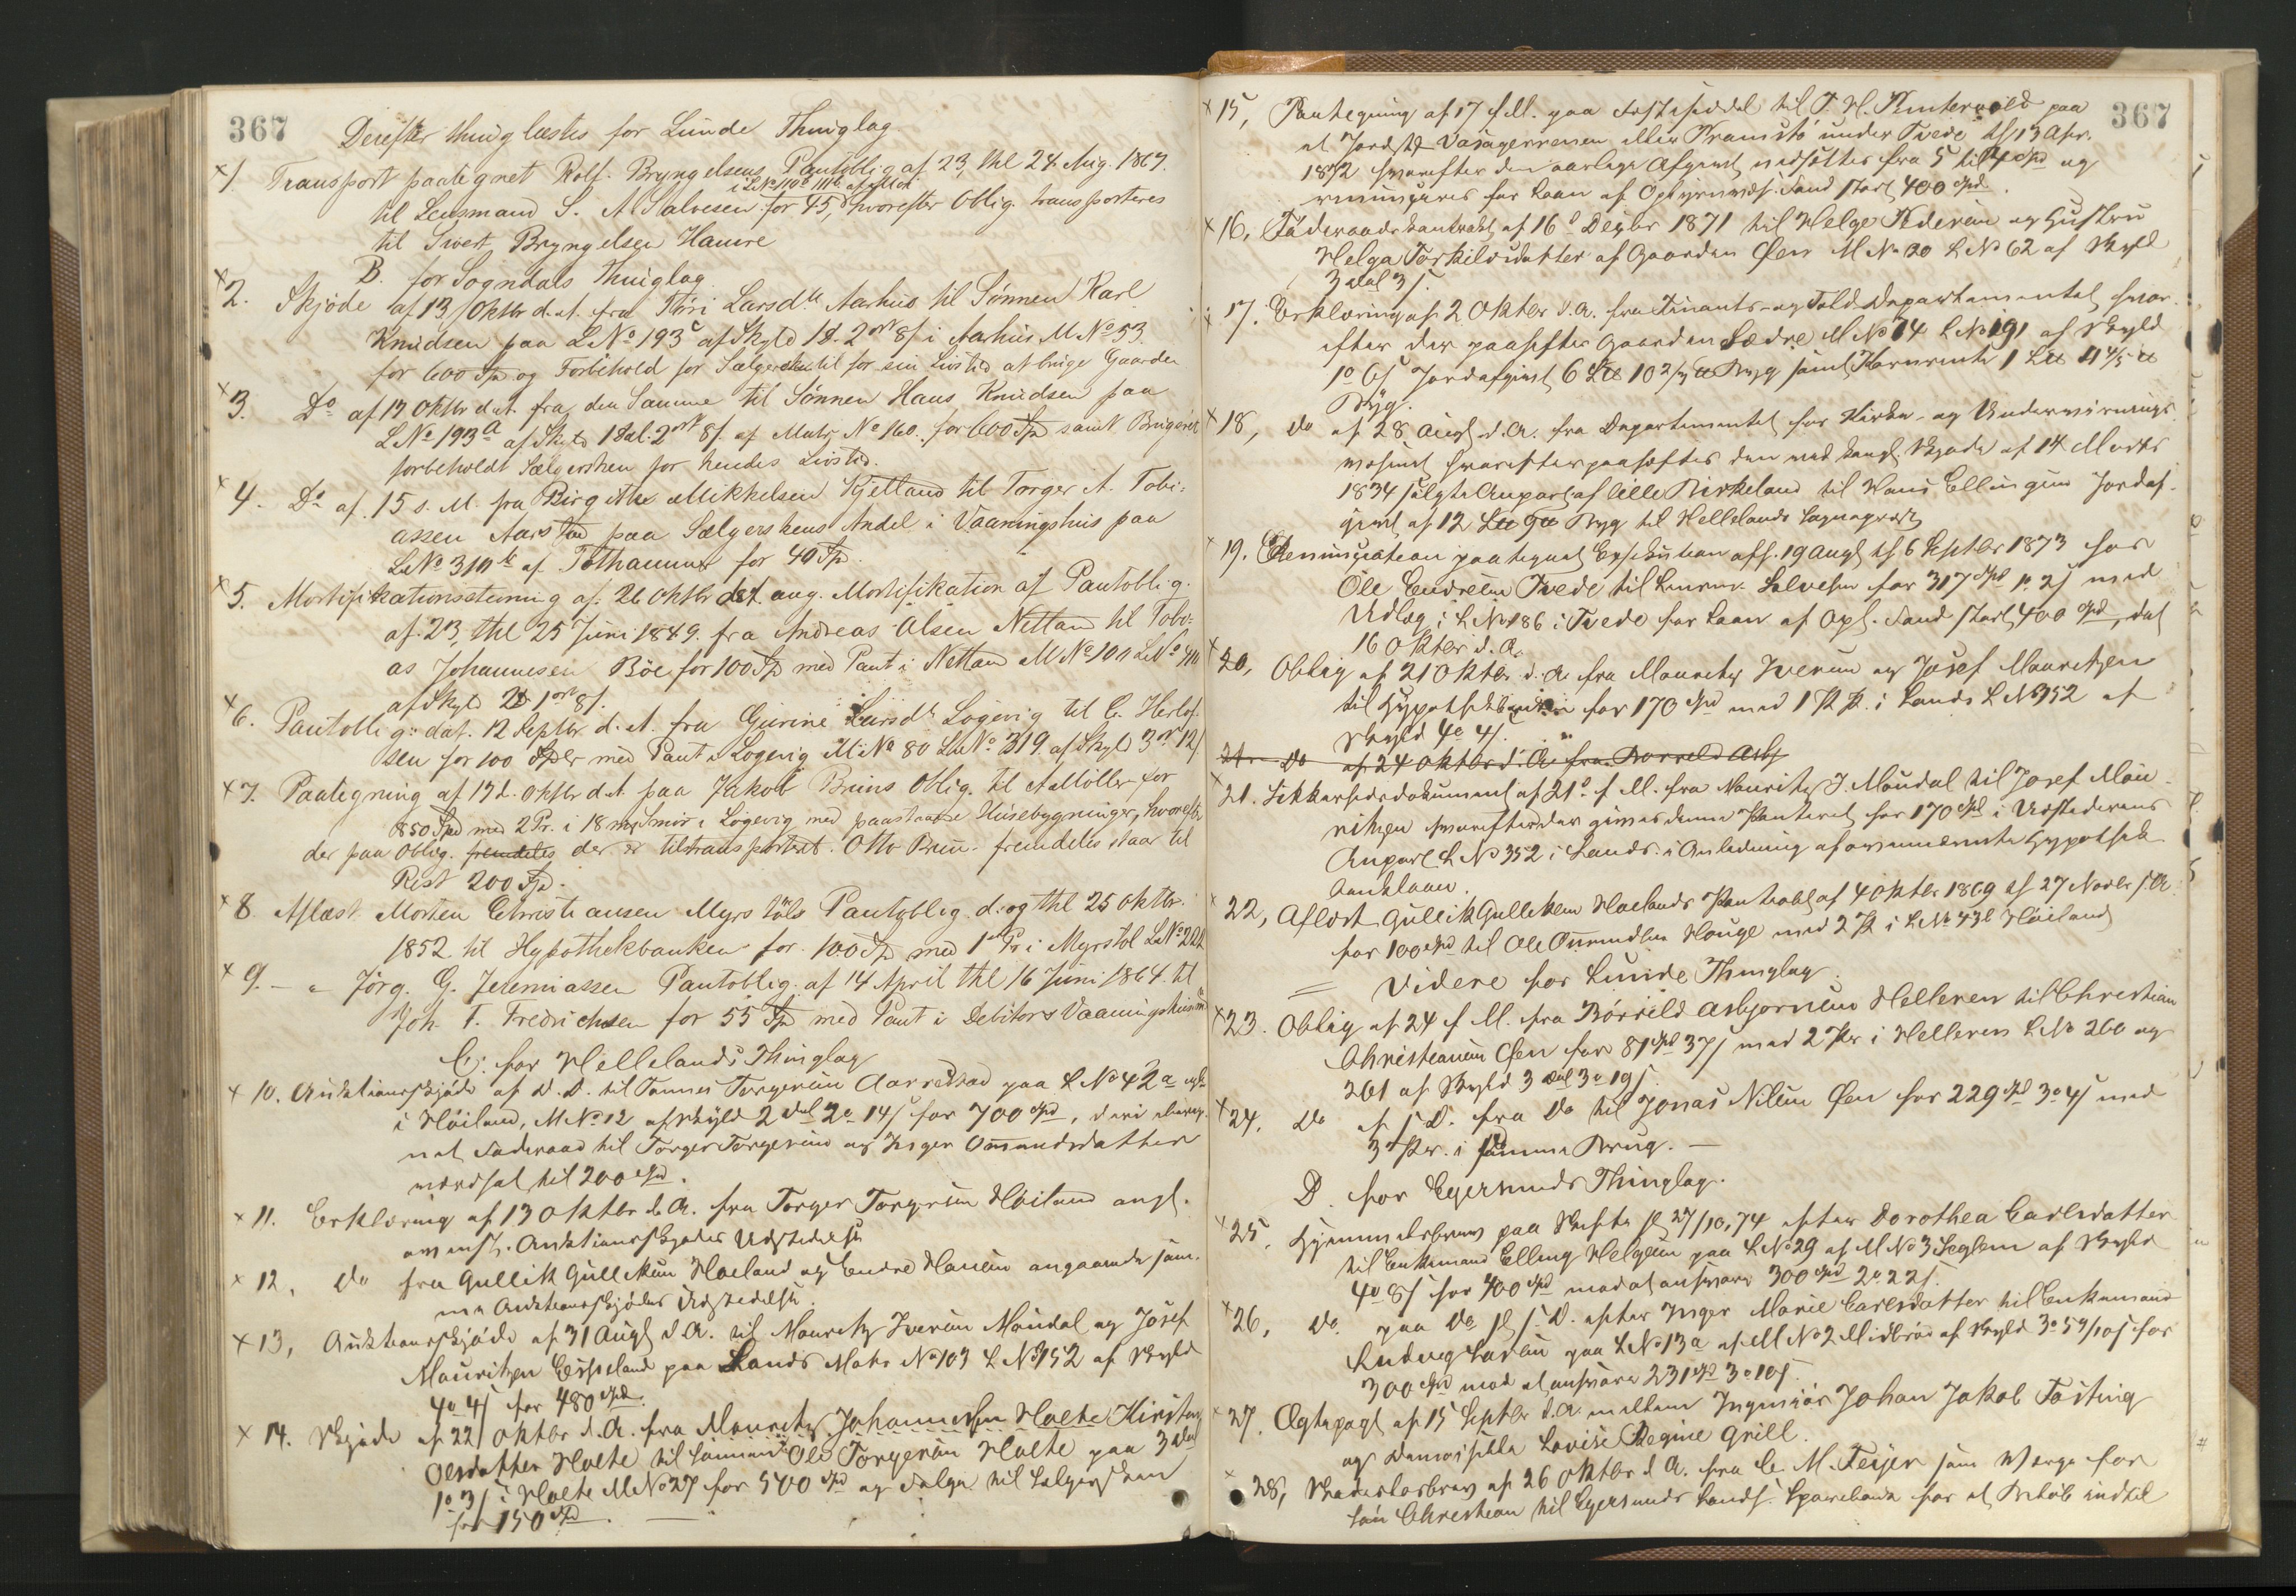 367
Derefter thinglæstes for Lunde Thinglag
x 1. Transport paategnet Rolf Bryngelsens Pantoblig af 23, thl 24 Aug. 1867.
i LNo 110 b 111 b af
til Lensmand S. A Salvesen for 45, hvorefter Oblig. transporteres
til Sivert Bryngelsen Hamre
B. for Sogndals Thinglag
x 2. Skjøde af 13 Oktbr d. A. fra Thri Larsdtr Aarhus til Sønnen Karl
Knudsen paa LNo 193 c af Skyld 1d. 2 ort 8 s i Aarhus MNo 53
for 600 Spd og Forbehold for Sælgersken til for sin Livstid at bruge Gaarden
x 3. Do af 13 Oktbr d A. fra den Samme til Sønnen Hans Knudsen paa
LNo 193 a af Skyld 1 dal. 2 ort 8 s. af Matr. No 160. for 600 Spd samt Brugsret
forbeholdt Sælgersken for hendes Livstid.
x 4. Do af 15 s. M. fra Birgithe Mikkelsen Kjelland til Torger A. Tobi=
assen Aarstad paa Sælgerskens Andel i Vaaningshuis paa
LNo 310 b af Tothammer for 40 Spd.
x 5. Mortifikationsstevning af 26 Oktbr d A. ang. Mortifikation af Pantoblig.
af 23, thl 25 Juni 1849. fra Andreas Olsen Nettan til Tobi=
as Johannesen Böe for 100 Spd med Pant i Nettan MNo 101 LNo
af Skyld 2d 1 ort 8 s.
x 6. Pantoblig: dat. 12 Septbr. d. A. fra Gurine Larsdtr Løgevig til C. Herlof-
sen for 100 Spdlr med Pant i Løgevig MNo 80 LNo 319. af Skyld 3 ort 12 s
x 7. Paategning af 13 d. Oktbr d. A. paa Jakob Bruns Oblig. til A Møller for
850 Spd med 2 Pr. i 18 mk Smør i Løgevig med paastaaende Husebygninger, hvorefter
der paa Oblig. fremdeles der er tiltransporteret Otto Bruu. fremdeles staar til
Rest 200 Spd.
x 8. Aflæst Morten Christiansen Myrstöls Pantoblig. d: og thl 25 Oktbr.
1852 til Hypothekbanken for 100 Spd med 1ste Pr i Myrstöl LNo 222
x 9. – " Jörg. G. Jeremiassen Pantoblig. af 14 April thl 16 Juni 1864 til
Joh T. Fredrichsen for 55 Spd med Pant i Debitors Vaaningshuus
C: for Hellelands Thinglag
x 10. Auktionsskjøde af D. D. til Tønnes Torgersen Aarrestad paa L No 42 a
i Høiland, MNo 12 af Skyld 2 dal 2 o 14 s for 700 Spd,
net Føderaad til Torger Torgersen og Inger Omundsdatter
værdsat til 200 Spd.
x 11. Erklæring af 13 Oktbr d. A. fra Torger Torgersen Høiland angl.
ovennst. Auktionsskjødes Udstedelse
x 12, Do fra Gullik Gulleksen Høeland og Endre Hansen angaaende sam-
me Auktionsskjødes Udstedelse.
x 13, Auktionsskjøde af 31 Augt d. A. til Mauritz Iversen Maudal og Josef
Mauritzen Eespeland paa Lands Matr No 109 L No 352 af Skyld
4 o 4 s for 480 Spd.
x 14. Skjøde af 22 Oktbr d. A. fra Mauritz Johannessen Holte Kirsten
Olesdatter Holte til Sønnen Ole Torgersen Holte paa 3 dal
1 o 3 s i Holte MNo 27 for 500 Spd og Følge til Sælgersken
for 150 Spd.
367
x 15, Paategning af 17 f. M. paa Festeseddel til T. H. Kintervold paa
et Jordst. Vasagerrenen eller Pramstø under Tvede thl 13 Apr.
1872 hvorefter den aarlige Afgivt nedsættes fra 5 til Spd og
renunceres for Laan af Oplysningsv. Fond stort 400 Spd.
x 16, Føderaadskontrakt af 16 d Dezbr 1871 til Helge Pedersen og Hustru
Helga Torkildsdatter af Gaarden Øen M No 20 L No 62 af Skyld
3 dal 3 s.
x 17. Erklæring af 2 Oktbr d. A. fra Finants- og Told-Departementet hvor-
efter der paahefter Gaarden Sædre MNo 14 LNo 191 af Skyld
1 o 6 s Jordafgivt 6 L 10 2/3 Byg samt Kornrente 1 L 4 4/5
Byg.
x 18, Do af 28 Augt d. A. fra Departementet for Kirke- og Undervisnings-
væsenet hvorefter paaheftes den ved kongl. Skjøde af 14 Marts
1834 solgte Anpart af lille Birkeland til Hans Ellingsen Jordaf-
givt af 12 L Byg til Hellelands Sogneprest
x 19. Renunciation paategnet Exsekution afh. 19 Augt thl 6 Septbr 1873 hos
Ole Endresen Tvede til Lensm. Salvesen for 317 Spd 1 o 2 s med
Udlæg i L No 186 i Tvede for Laan af Opl. Fond stort 400 Spd, dat
16 Oktbr d. A.
x 20, Oblig af 21 Oktbr d. A. fra Mauritz Iversen og Josef Mauritzen
til Hypothekbanken for 170 Spd med 1 P. R. i Lands L No 352 af
Skyld 4 o 4 s.
21. Do af 24 Oktbr d. A. fra Borreld Asbj
x 21. Sikkerhedsdokument af 21 d. f. M. fra Mauritz I. Maudal til Josef Mau-
ritzen hvorefter der gives denne Panteret for 170 Spd i Udstederens
Anpart L No 352 i Lands i Anledning af ovennævnte Hypothek-
banklaan.
x 22, Aflæst Gullik Gulleksen Hoelands Pantoblig af 4 Oktbr 1869 thl 27 Novbr s. A.
for 100 Spd til Ole Omundsen Houge med 2 Pr. i L No 43 b Høiland
Videre for Lunde Thinglag.
x 23. Oblig af 24 f. M. fra Börreld Asbjørnsen Helleren til Christian
Christiansen Øen for 81 Spd 37 s med 2 Pr i Helleren L No 260 og
261 af Skyld 3 dal 3 o 19 s.
x 24, Do af s. D. fra Do til Jonas Nilsen Øen for 229 Spd 3 o 4 s med
3 Pr. i samme Brug. —
D. for Egersunds Thinglag.
x 25, Hjemmelsbrev paa Skifte sl 27/10, 74 efter Dorothea Carlsdatter
til Enkemand Elling Helgesen paa L No 29 af M No 3 Leglem af Skyld
4 o 8 s for 400 Spd mod at ansvare 300 Spd 2 o 22 s.
x 26, Do. paa Do sl s. D. efter Inger Marie Carlsdatter til Enkemand
Ludvig Larsen paa L No 13 a af M No 2 Midbrød af Skyld 3 o 5 9/10 s for
300 Spd mod at ansvare 231 Spd 3 o 10 s.
x 27. Ægtepagt af 15 Septbr d. A. mellem Ingeniør Johan Jakob Fasting
og Demoiselle Lovise Regine Grill.
x 28, Skadesløsbrev af 26 Oktbr d. A. fra C. M. Feyer som Værge for
Søn Christian til Egersunds Lands. Sparebank for et Beløb indtil